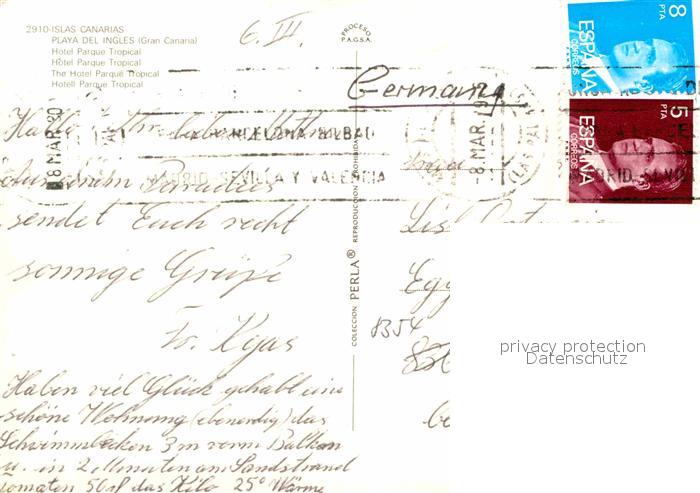 2910-ISLAS CANARIAS
PLAYA DEL INGLES (Gran Canaria)
Hotel Parque Tropical
Hôtel Parque Tropical
The Hotel Parque Tropical
Hotell Parque Tropical
6. III.
PROCESO
P.A.G.S.A.
Germany
8 PTA
ESPAÑA
CORREOS
5 PTA
ESPAÑA
CORREOS
8 MAR. 80
BARCELONA/BILBAO
MADRID SEVILLA Y VALENCIA
-8 MAR.
LAS PAL
Paradies
sendet Euch recht
sonnige Grüße
Fr. Kijas
COLECCION PERLA® REPRODUCCION PROHIBIDA
8354
privacy protection
Datenschutz
Haben viel Glück gehabt eine
schöne Wohnung (ebenerdig) das
Schwimmbecken 3 m vorm Balkon
u. in 2 Minuten am Sandstrand
tomaten 50 das Kilo 25° Wärme